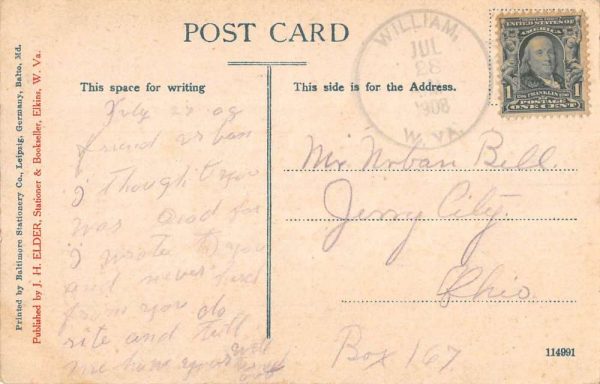 POST CARD
This space for writing
This side is for the Address.
Printed by Baltimore Stationery Co., Leipzig, Germany, Balto, Md.
Published by J. H. ELDER, Stationer & Bookseller, Elkins, W. Va.
WILLIAM,
JUL
1908
W. VA.
UNITED STATES OF
AMERICA
1 FRANKLIN 1
POSTAGE
ONE CENT
July
friend urban
I thought you
was
I wrote to you
and never
from you do
rite and tell
me how you
Mr. Urban Bell
Jerry City.
Ohio.
Box 167
114991